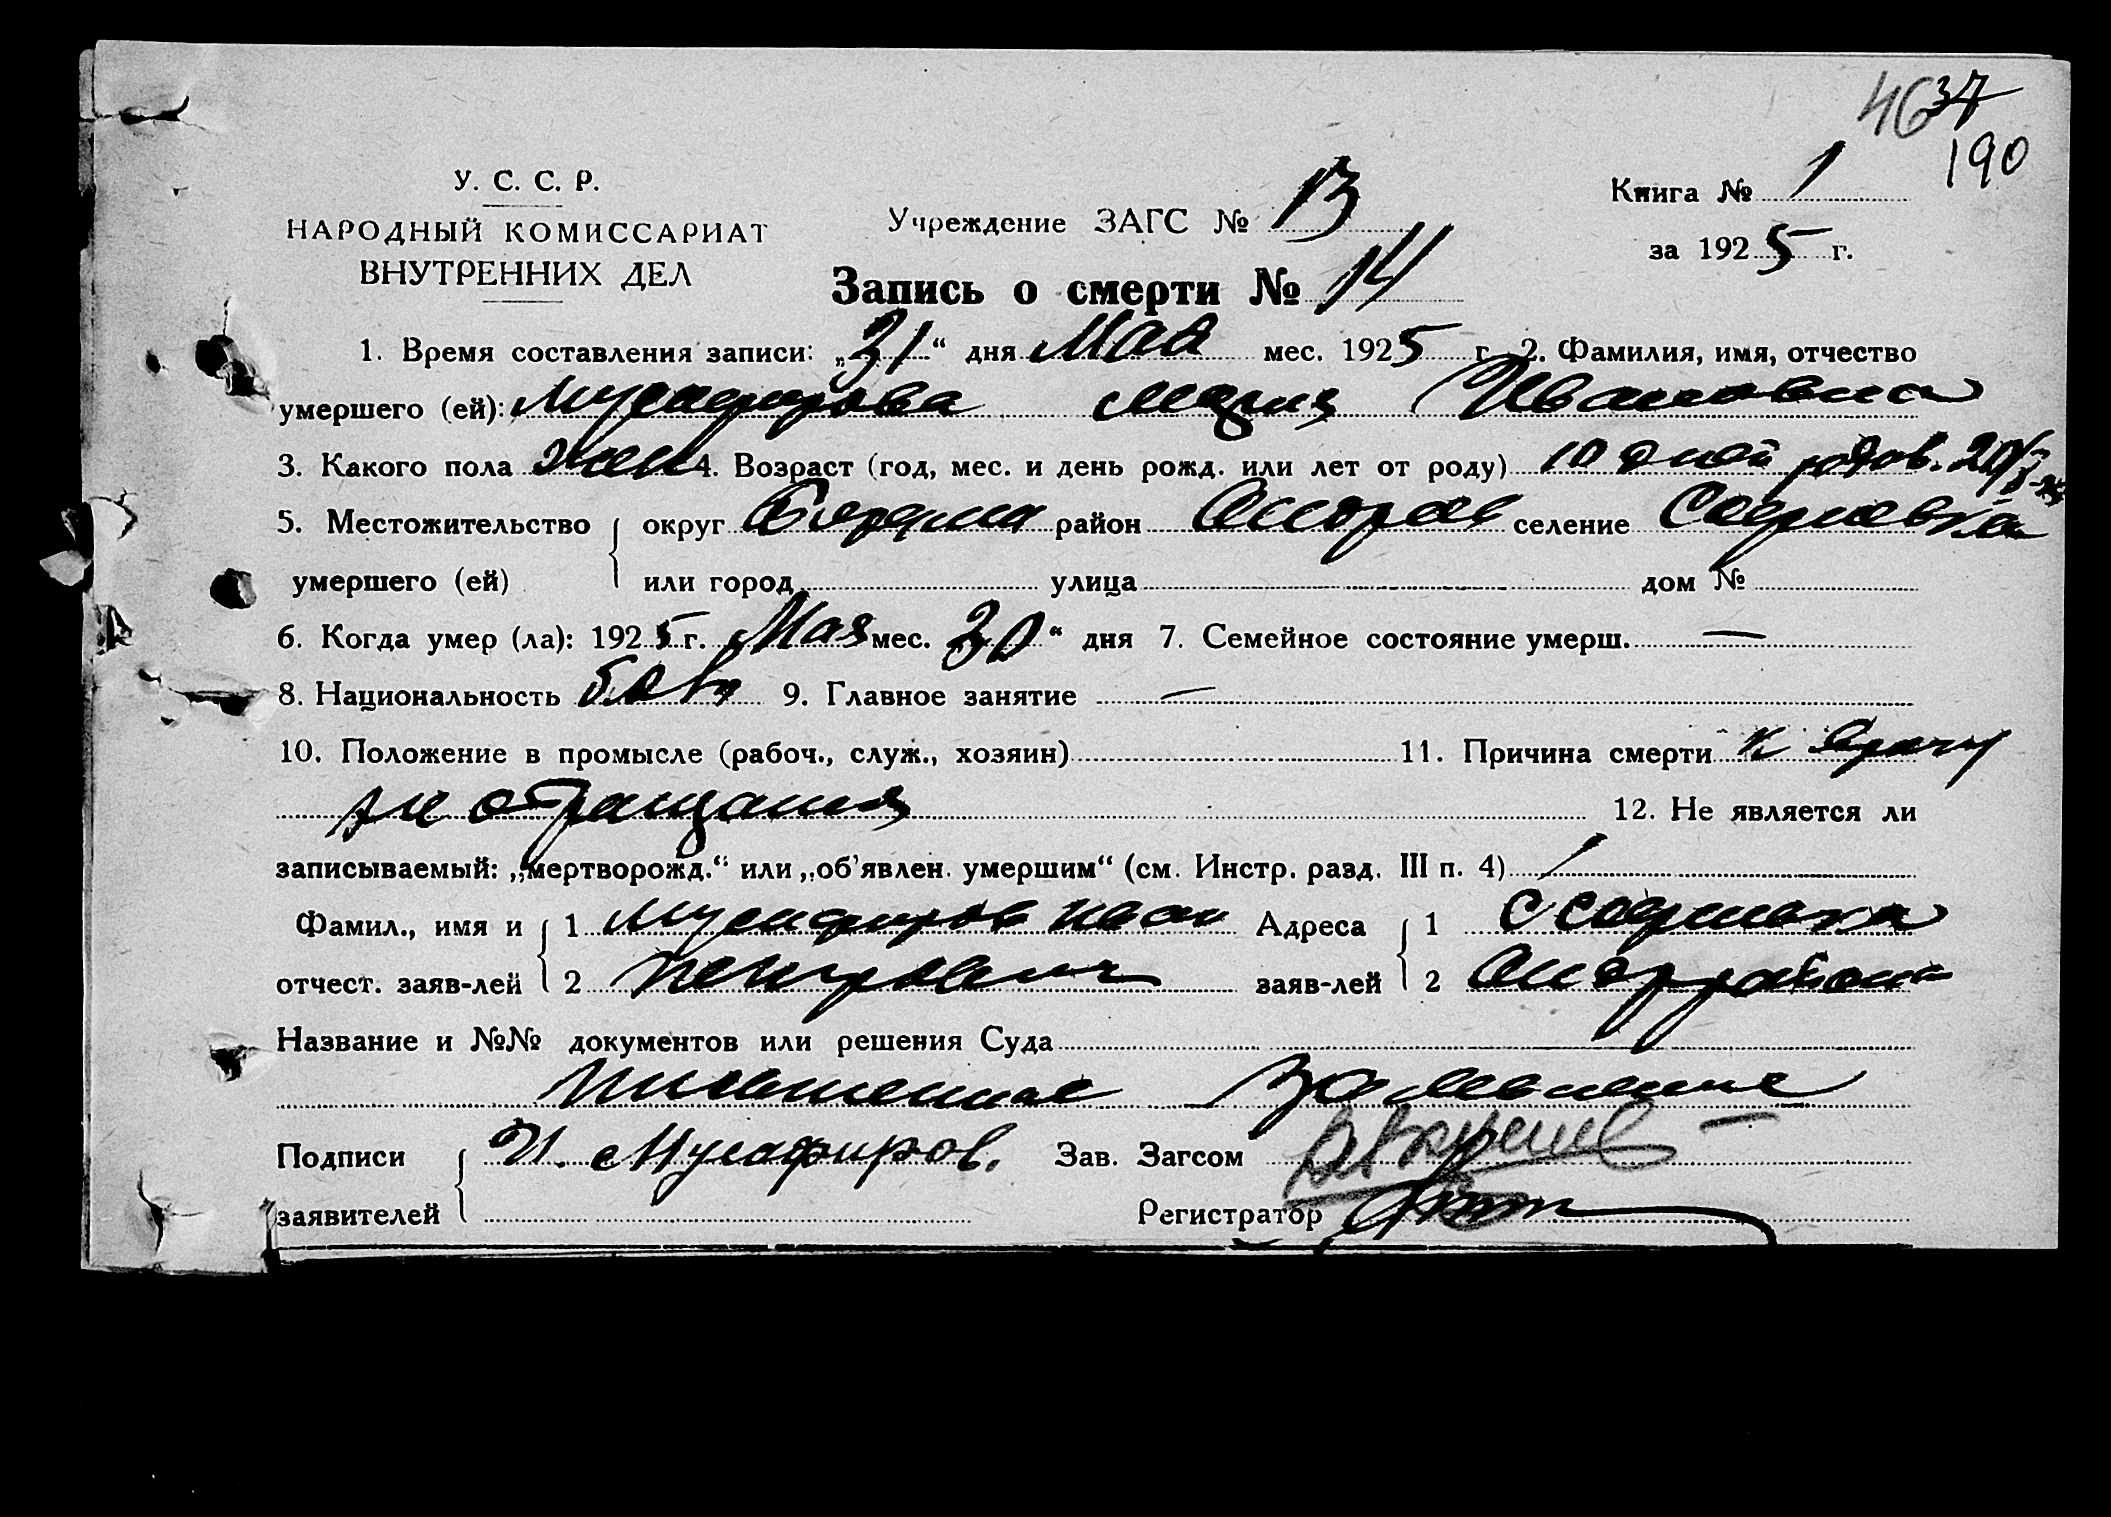 46 37
190
У. С. С. Р.
НАРОДНЫЙ КОМИССАРИАТ
ВНУТРЕННИХ ДЕЛ
Учреждение ЗАГС № 13
Книга № 1
за 1925 г.
Запись о смерти № 14
1. Время составления записи: „31“ дня Мая мес. 1925 г. 2. Фамилия, имя, отчество
умершего (ей): Мусафирова Мария Ивановна
3. Какого пола жен 4. Возраст (год, мес. и день рожд. или лет от роду) 10 дней
5. Местожительство { округ район Андров селение Софиевка
умершего (ей) или город улица дом №
6. Когда умер (ла): 1925 г. Мая мес. 30“ дня 7. Семейное состояние умерш. —
8. Национальность 9. Главное занятие —
10. Положение в промысле (рабоч., служ., хозяин) 11. Причина смерти к врачу
не обращался
12. Не является ли
записываемый: „мертворожд.“ или „об’явлен. умершим“ (см. Инстр. разд. III п. 4)
Фамил., имя и { 1 Мусафиров Иван Адреса { 1 с Софиевка
отчест. заяв-лей 2 заяв-лей 2 района
Название и №№ документов или решения Суда
письменное заявление
Подписи { И. Мусафиров. Зав. Загсом
заявителей Регистратор